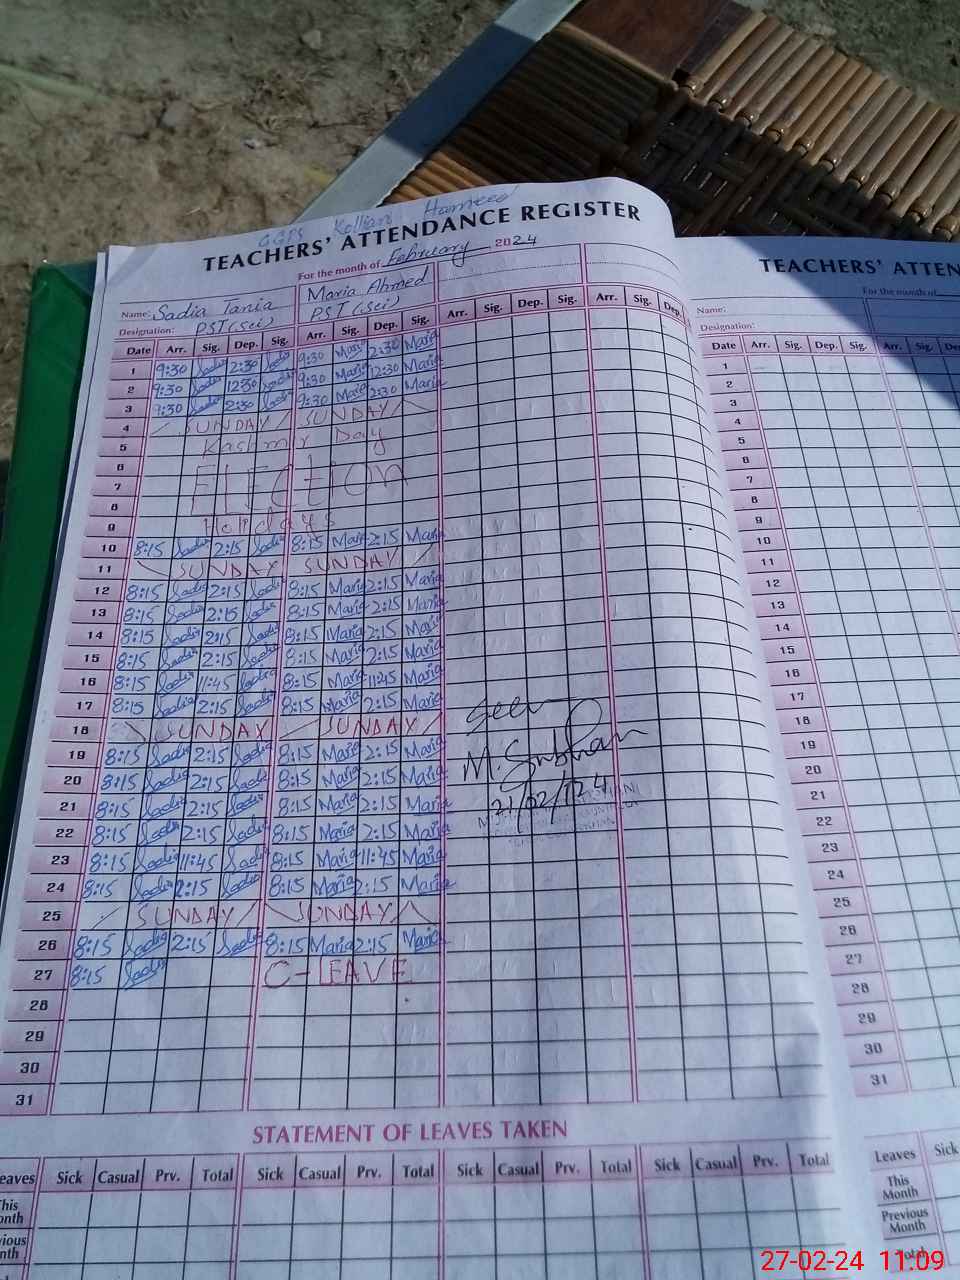 GGPS Kollian Hameed
TEACHERS' ATTENDANCE REGISTER
For the month of February 2024
Name: Sadia Tania Maria Ahmed
Designation: PST(Sci) PST(Sci)
Date Arr. Sig. Dep. Sig. Arr. Sig. Dep. Sig. Arr. Sig. Dep. Sig. Arr. Sig. Dep.
1 9:30 Sadia 2:30 Sadia 9:30 Maria 2:30 Maria
2 9:30 Sadia 12:30 Sadia 9:30 Maria 12:30 Maria
3 9:30 Sadia 2:30 Sadia 9:30 Maria 2:30 Maria
4 SUNDAY SUNDAY
5 Kashmir Day
6
7 ELECtION
8
9 Holidays
10 8:15 Sadia 2:15 Sadia 8:15 Maria 2:15 Maria
11 SUNDAY SUNDAY
12 8:15 Sadia 2:15 Sadia 8:15 Maria 2:15 Maria
13 8:15 Sadia 2:15 Sadia 8:15 Maria 2:15 Maria
14 8:15 Sadia 2:15 Sadia 8:15 Maria 2:15 Maria
15 8:15 Sadia 2:15 Sadia 8:15 Maria 2:15 Maria
16 8:15 Sadia 11:45 Sadia 8:15 Maria 11:45 Maria
17 8:15 Sadia 2:15 Sadia 8:15 Maria 2:15 Maria
18 SUNDAY SUNDAY
Seen
19 8:15 Sadia 2:15 Sadia 8:15 Maria 2:15 Maria
M. Subhan
20 8:15 Sadia 2:15 Sadia 8:15 Maria 2:15 Maria
21/02/124
21 8:15 Sadia 2:15 Sadia 8:15 Maria 2:15 Maria
22 8:15 Sadia 2:15 Sadia 8:15 Maria 2:15 Maria
23 8:15 Sadia 11:45 Sadia 8:15 Maria 11:45 Maria
24 8:15 Sadia 2:15 Sadia 8:15 Maria 2:15 Maria
25 SUNDAY SUNDAY
26 8:15 Sadia 2:15 Sadia 8:15 Maria 2:15 Maria
27 8:15 Sadia C-LEAVE
28
29
30
31
STATEMENT OF LEAVES TAKEN
eaves Sick Casual Prv. Total Sick Casual Prv. Total Sick Casual Prv. Total Sick Casual Prv. Total
This
onth
vious
nth
TEACHERS' ATTEN
For the month of
Name:
Designation:
Date Arr. Sig. Dep. Sig. Arr. Sig. De
1
2
3
4
5
6
7
8
9
10
11
12
13
14
15
16
17
18
19
20
21
22
23
24
25
26
27
28
29
30
31
Leaves Sick
This
Month
Previous
Month
Total
27-02-24 11:09